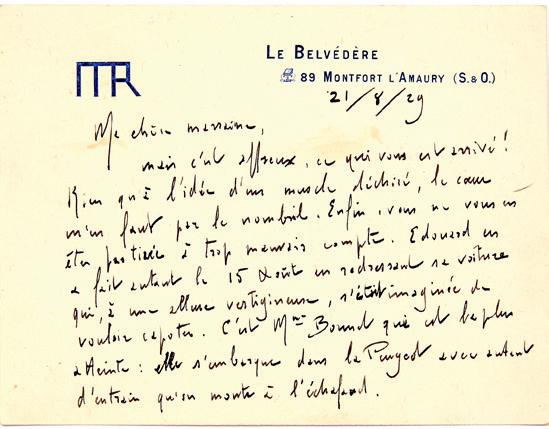 MR
LE BELVÉDÈRE
89 MONTFORT L'AMAURY (S.&O.)
21/8/29
Ma chère marraine,
mais c'est affreux, ce qui vous est arrivé!
Rien qu'à l'idée d'un muscle déchiré, le cœur
m'en faut par le nombril. Enfin, vous ne vous en
êtes pas tirée à trop mauvais compte. Edouard en
a fait autant le 15 Août en redressant sa voiture
qui, à une allure vertigineuse, s'était imaginée de
vouloir capoter. C'est Mme Bonnet qui est la plus
atteinte: elle s'embarque dans la Peugeot avec autant
d'entrain qu'on monte à l'échafaud.